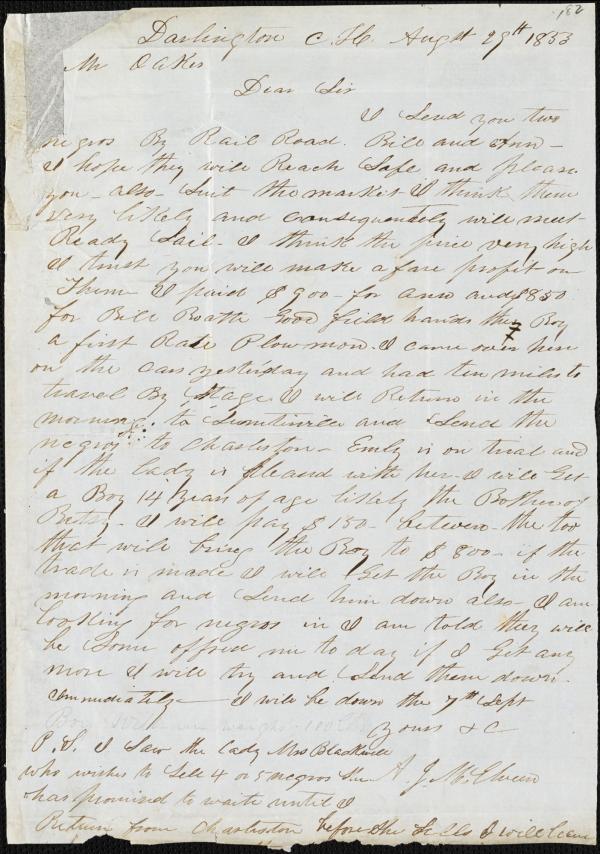 182
Darlington C.H. Augst 29th 1853
Mr Oakes
Dear Sir
I Send you two
negros By Rail Road. Bill and Ann -
I hope they will Reach Safe and please
you - also Suit the market I think them
very likely and consequentely will meet
Ready Sail - I think the price very high
I trust you will make a fare profit on
Them I paid $900 - for Ann and $850
for Bill Boath Good field hands the Boy
a first Rate Plowman. I came over here
on the cars yesterday and had ten miles to
travel By Stage I will Return in the
morning to Sumterville and Send the
negros to Charleston - Emly is on trial and
if the lady is pleasd with her I will Get
a Boy 14 years of age likely the Bother of
Betsy - I will pay $150 - between the too
that will bring the Boy to $800 - if the
trade is made I will Get the Boy in the
morning and Send him down also - I am
looking for negros in I am told they will
be Some offred me to day if I Get any
more I will try and Send them down
immediately - I will be down the 7th Sept
Yours &C
A. J. McElveen
P.S. I Saw the lady Mrs Blackwell
who wishes to Sell 4 or 5 negros She
has promised to waite until I
Return from Charleston before She Sells I will leave